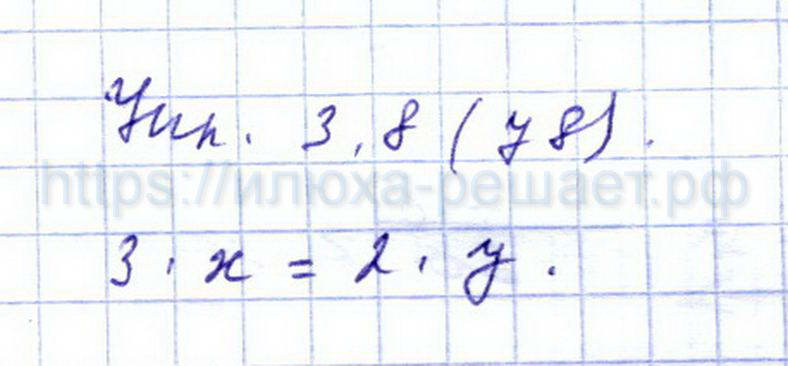 Упр. 3.8 (78).
https://илюха-решает.рф
3 · x = 2 · y.